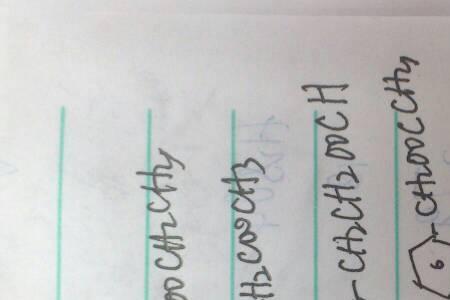 OOCH2CH3
H2COOCH3
-CH2CH2OOCH
-CH2OOCCH3